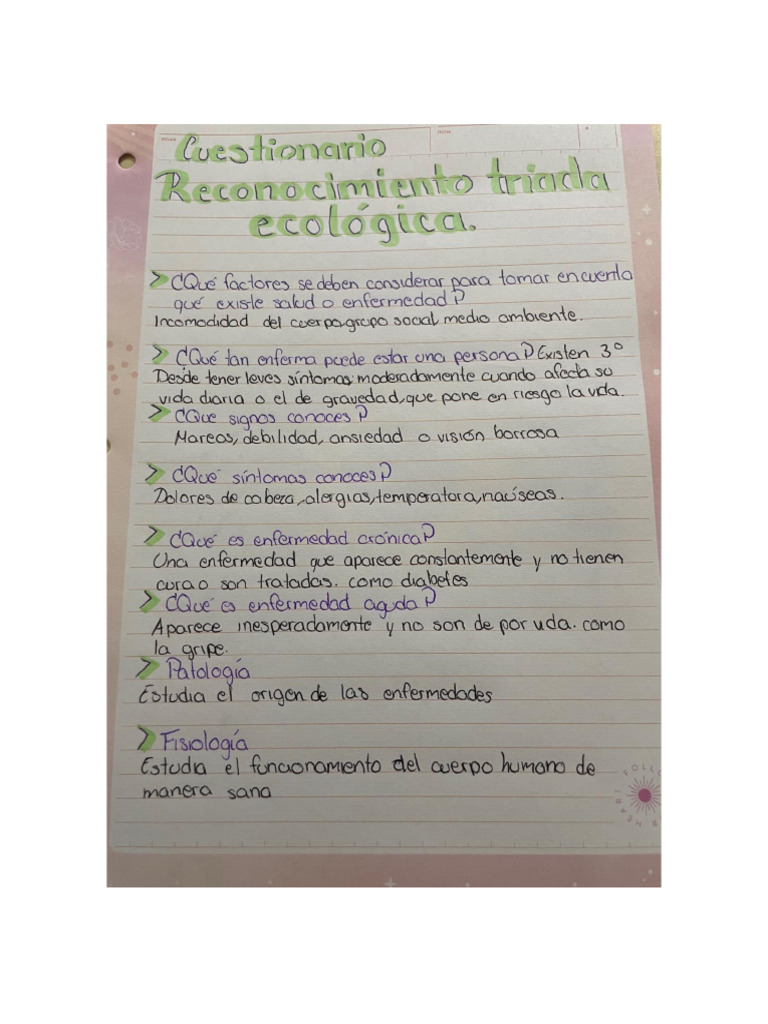 Cuestionario
Reconocimiento triada
ecológica.
> ¿Qué factores se deben considerar para tomar en cuenta
qué existe salud o enfermedad?
Incomodidad del cuerpo, grupo social, medio ambiente.
> ¿Qué tan enferma puede estar una persona? Existen 3°
Desde tener leves síntomas, moderadamente cuando afecta su
vida diaria o el de gravedad, que pone en riesgo la vida.
> ¿Que signos conoces?
Mareos, debilidad, ansiedad o visión borrosa
> ¿Qué síntomas conoces?
Dolores de cabeza, alergias, temperatura, naúseas.
> ¿Qué es enfermedad crónica?
Una enfermedad que aparece constantemente y no tienen
cura o son tratadas. como diabetes
> ¿Qué es enfermedad aguda?
Aparece inesperadamente y no son de por vida. como
la gripe.
> Patología
Estudia el origen de las enfermedades
> Fisiología
Estudia el funcionamiento del cuerpo humano de
manera sana